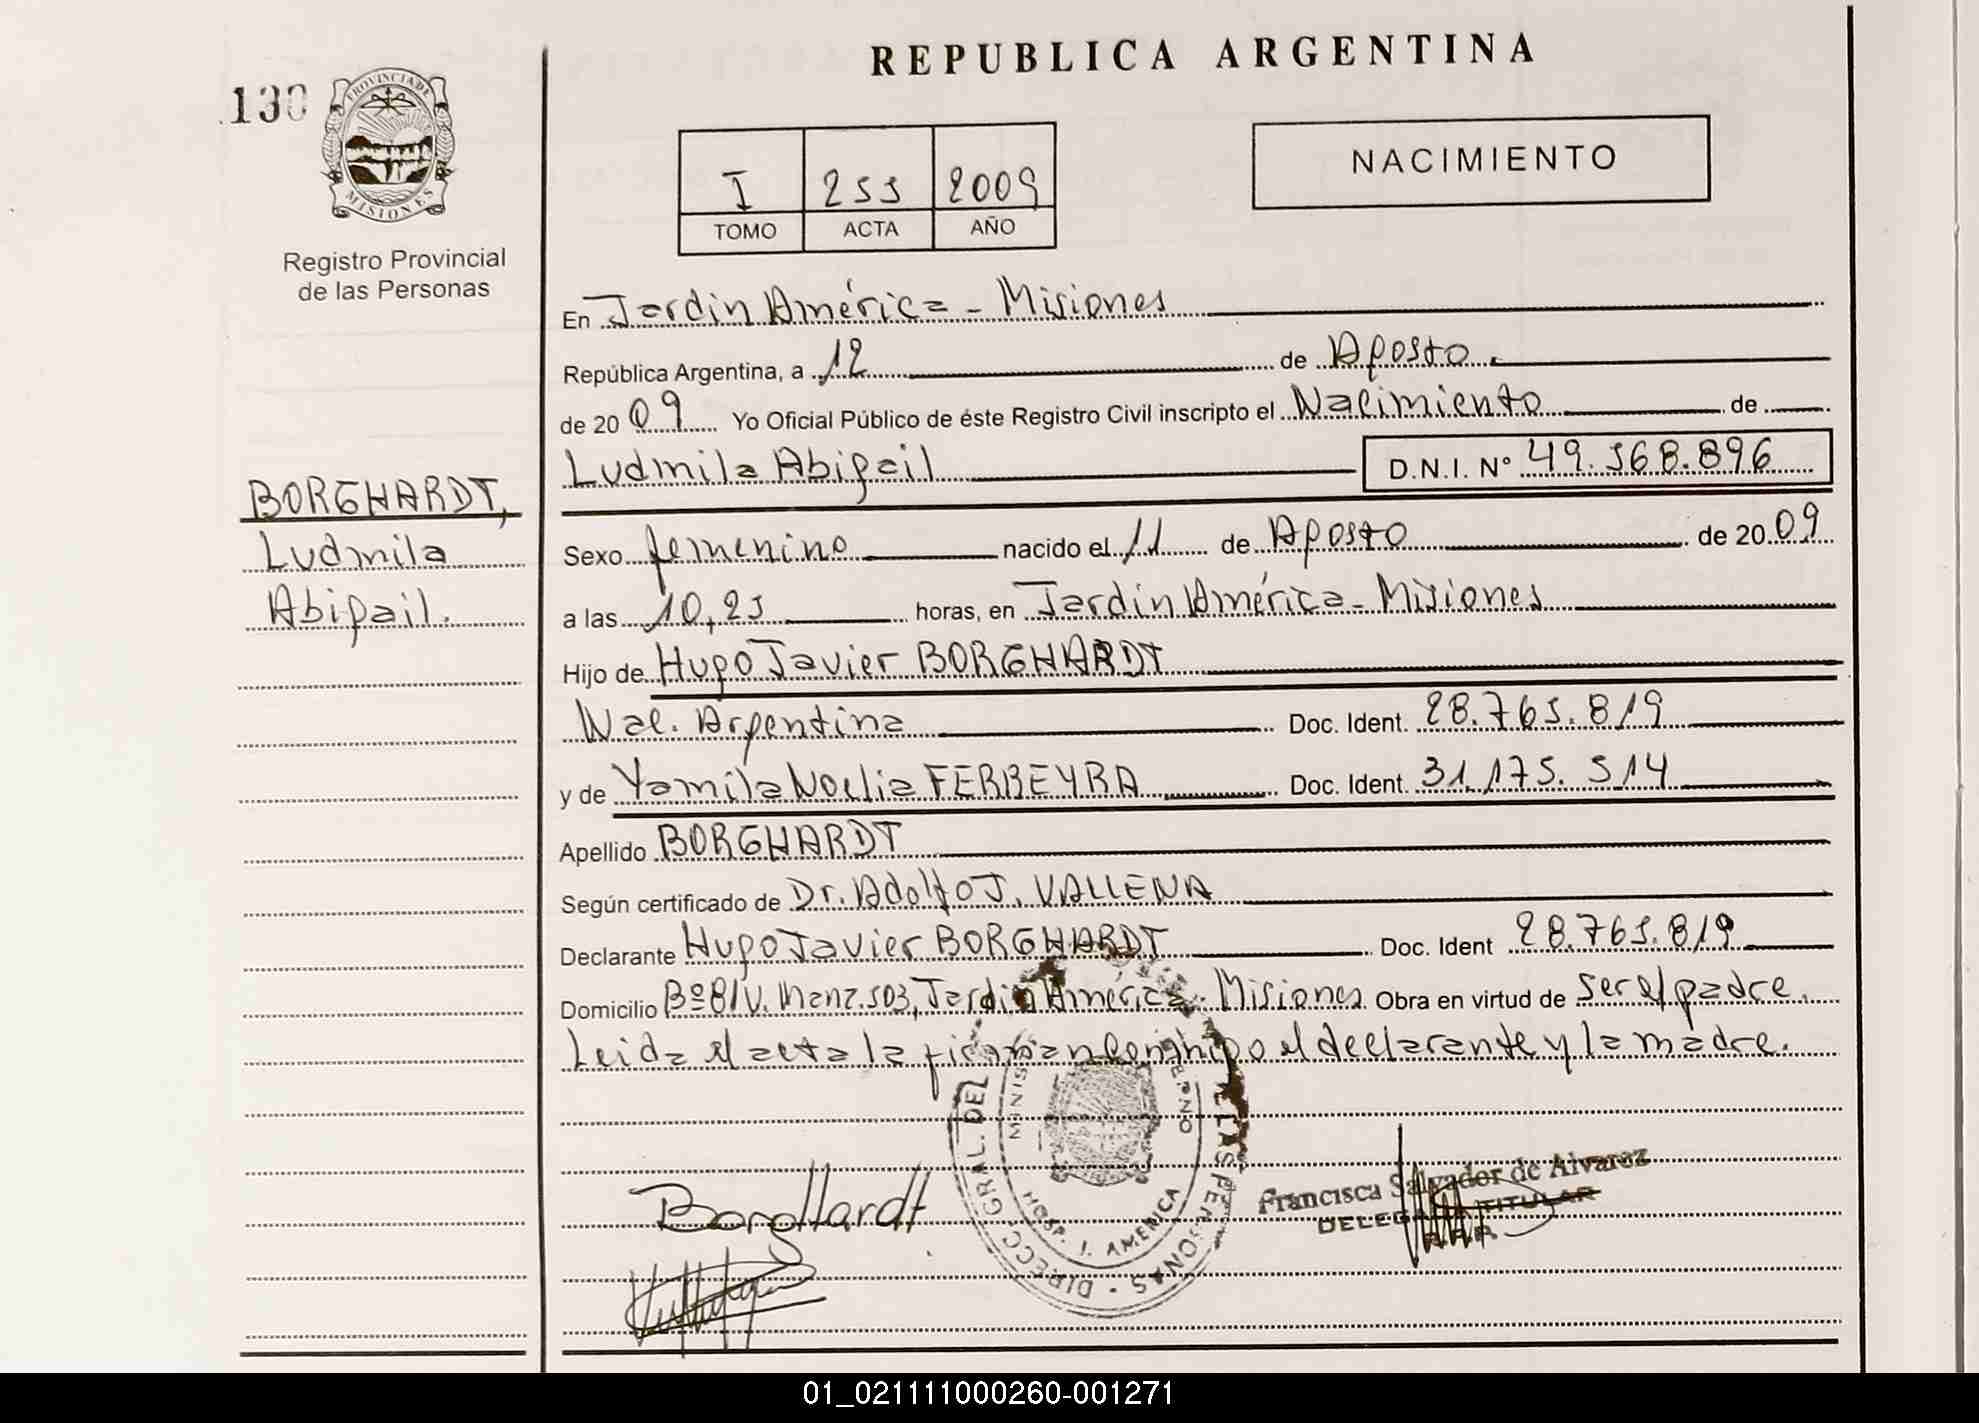 REPUBLICA ARGENTINA
130
PROVINCIA DE
MISIONES
Registro Provincial
de las Personas
I 255 2009
TOMO ACTA AÑO
NACIMIENTO
En Jardín América - Misiones
República Argentina, a 12 de Agosto
de 2009 Yo Oficial Público de éste Registro Civil inscripto el Nacimiento de
Ludmila Abigail D.N.I. Nº 49.568.896
BORGHARDT,
Ludmila
Abigail.
Sexo femenino nacido el 11 de Agosto de 2009
a las 10,25 horas, en Jardín América - Misiones
Hijo de Hugo Javier BORGHARDT
Nac. Argentina Doc. Ident. 28.765.819
y de Yamila Noelia FERREYRA Doc. Ident. 31.175.514
Apellido BORGHARDT
Según certificado de Dr. Adolfo J. VALLENA
Declarante Hugo Javier BORGHARDT Doc. Ident 28.765.819
Domicilio Bº B/V. Manz. 503, Jardín América - Misiones Obra en virtud de ser el padre.
Leida el acta la firman conmigo el declarante y la madre.
DIRECC. GRAL. DEL DE LAS PERSONAS
HOSP. J. AMERICA
Borghardt
Francisca Salvador de Alvarez
DELEGADA TITULAR
R.P.P.
01_021111000260-001271